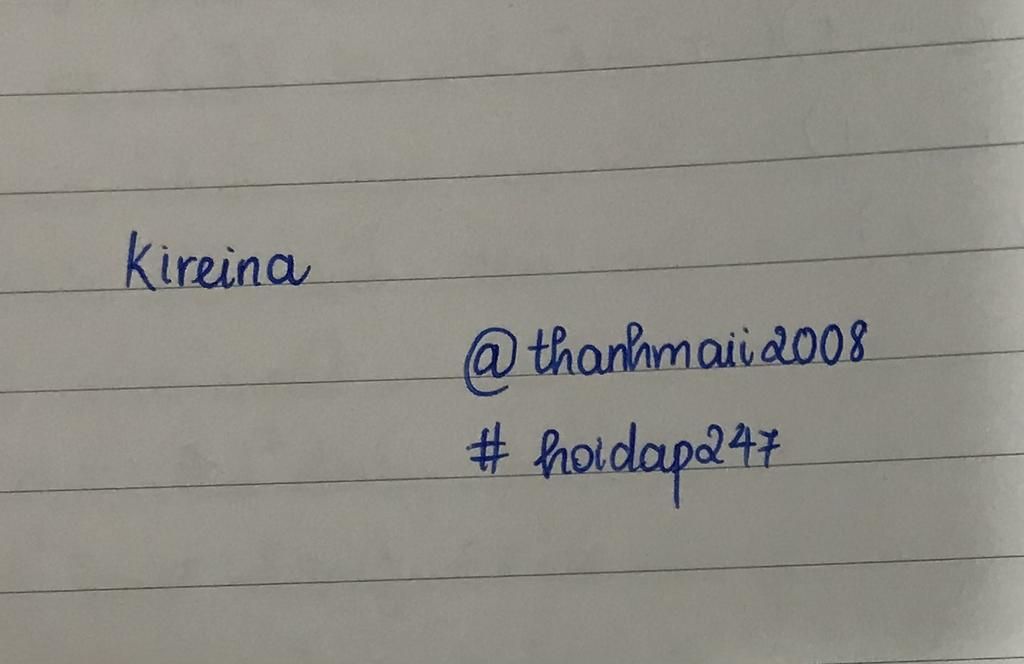 Kireina
@thanhmaii2008
# hoidap247